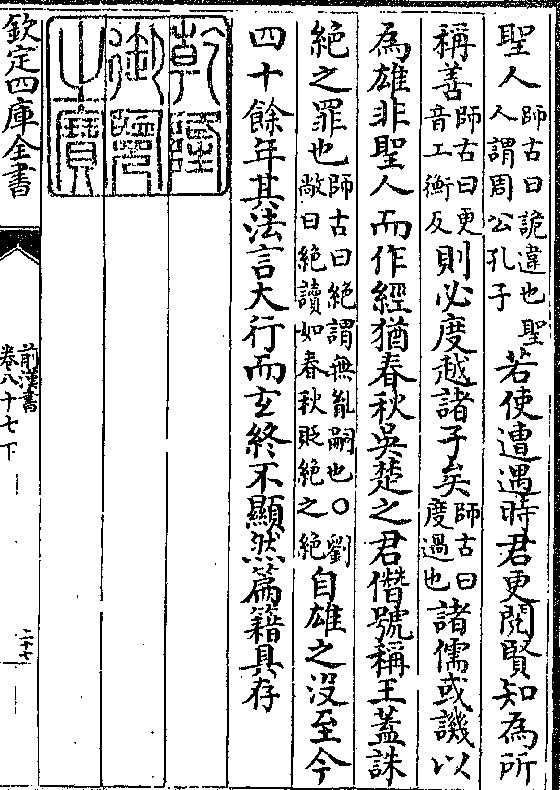 聖人師古曰詭違也聖人謂周公孔子若使遭遇時君更閱賢知為所
稱善師古曰更音工衡反則必度越諸子矣師古曰度過也諸儒或譏以
為雄非聖人而作經猶春秋吳楚之君僭號稱王蓋誅
絶之罪也師古曰絶謂無胤嗣也○劉敞曰絶讀如春秋貶絶之絶自雄之没至今
四十餘年其法言大行而玄終不顯然篇籍具存
乾隆御覽之寶
欽定四庫全書
前漢書
卷八十七下
二十七